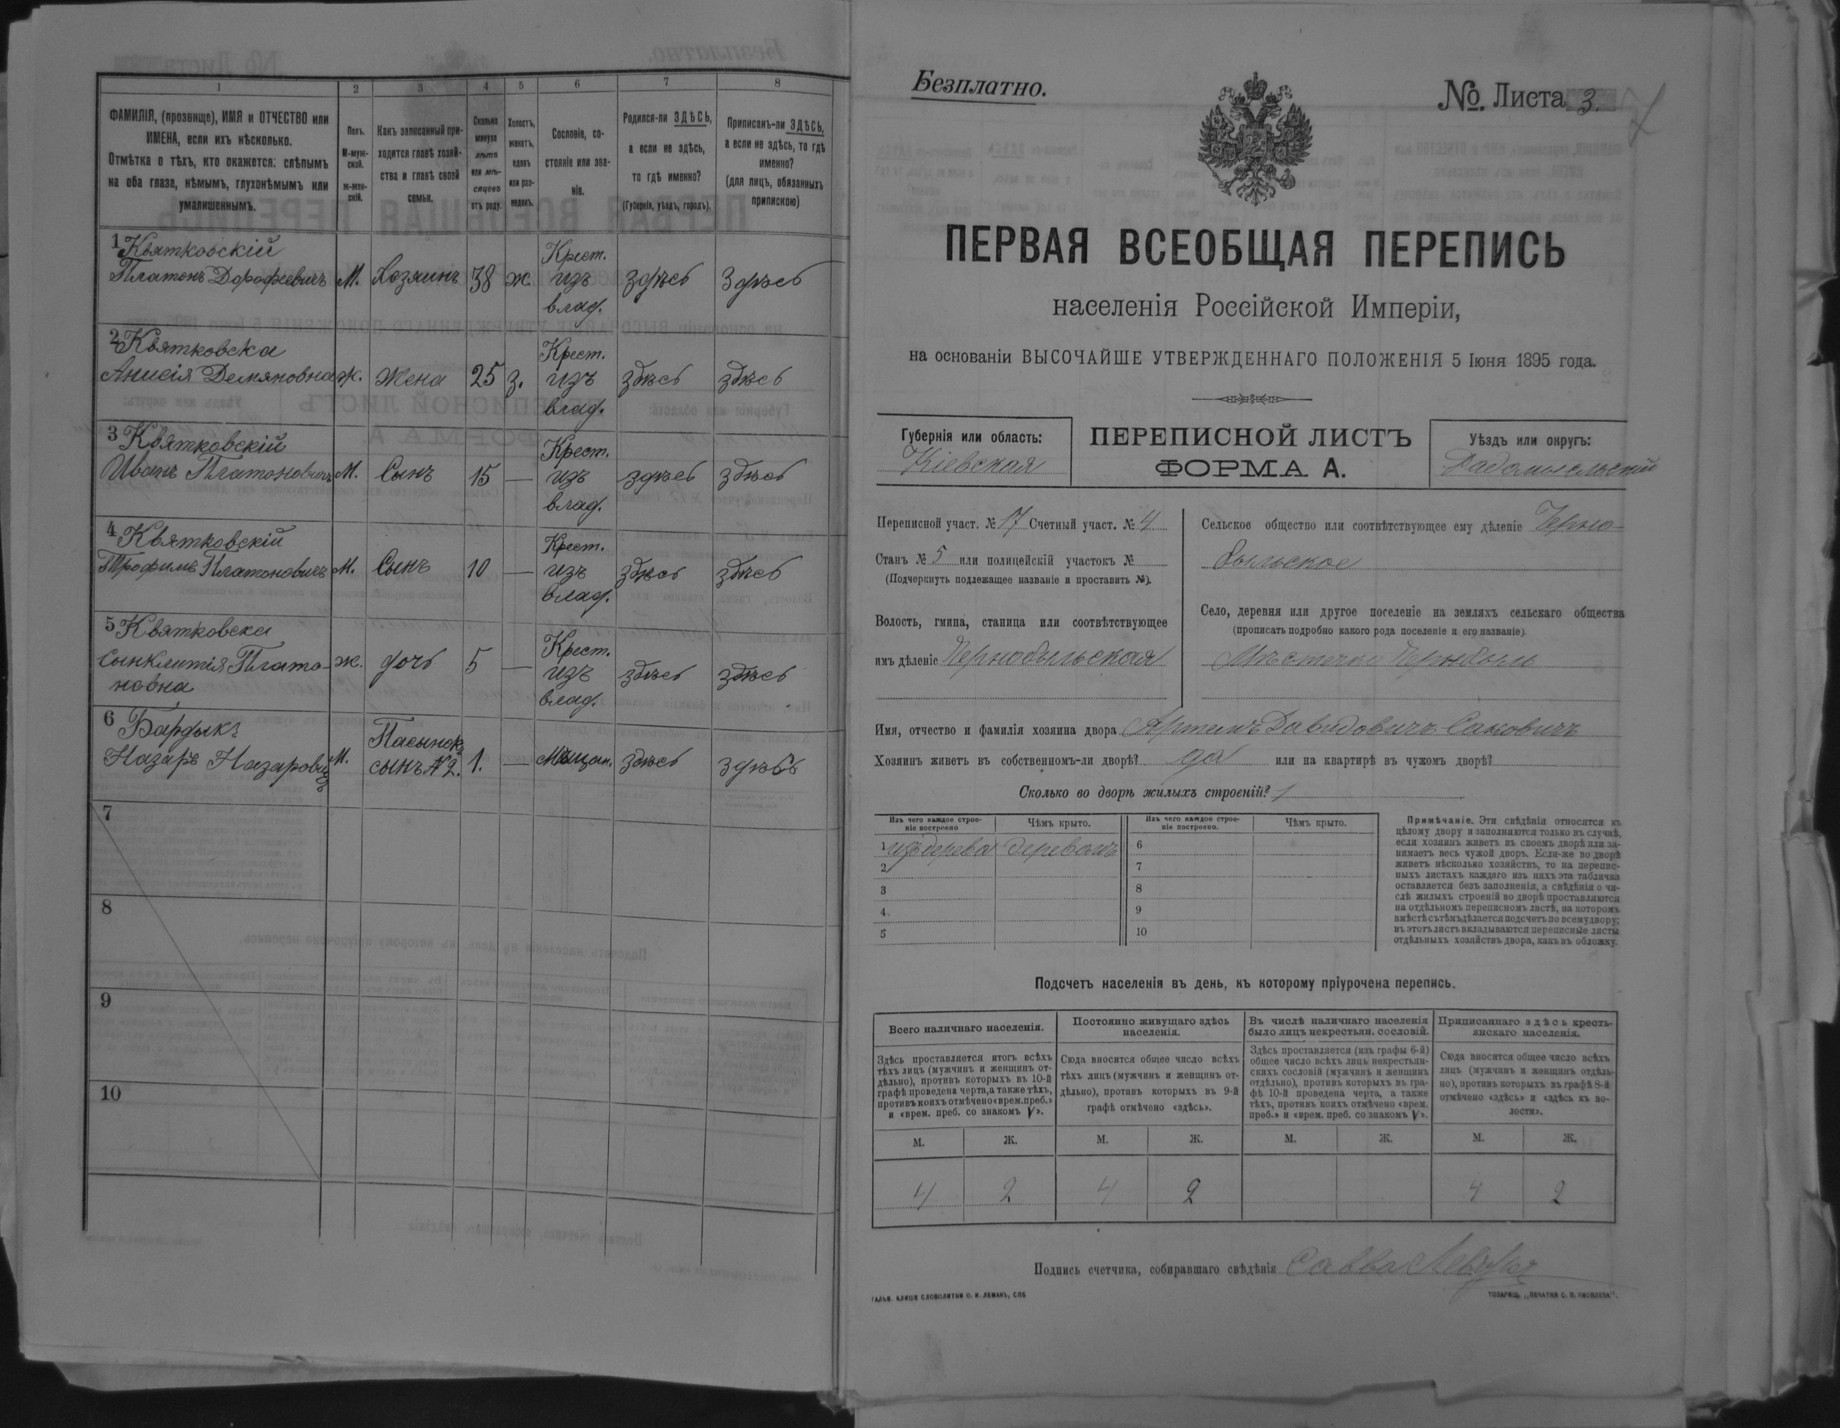 1 2 3 4 5 6 7 8
ФАМИЛІЯ, (прозвище), ИМЯ и ОТЧЕСТВО или
ИМЕНА, если ихъ нѣсколько.
Отмѣтка о тѣхъ, кто окажется: слѣпымъ
на оба глаза, нѣмымъ, глухонѣмымъ или
умалишеннымъ.
Полъ.
М-муж-
ской.
ж-жен-
скій.
Какъ записанный при-
ходится главѣ хозяй-
ства и главѣ своей
семьи.
Сколько
минуло
лѣтъ
или мѣ-
сяцевъ
отъ роду.
Холостъ,
женатъ,
вдовъ
или раз-
веденъ.
Сословіе, со-
стояніе или зва-
ніе.
Родился-ли ЗДѢСЬ,
а если не здѣсь,
то гдѣ именно?
(Губернія, уѣздъ, городъ).
Приписанъ-ли ЗДѢСЬ,
а если не здѣсь, то гдѣ
именно?
(для лицъ, обязанныхъ
припискою)
1 Квятковскій
Платонъ Дорофеевичъ М. Хозяинъ 38 ж. Крест. изъ влад. здѣсь Здѣсь
2 Квятковска
Анисія Демяновна ж. жена 25 з. Крест. изъ влад. здѣсь здѣсь
3 Квятковскій
Иванъ Платоновичъ М. Сынъ 15 — Крест. изъ влад. здѣсь здѣсь
4 Квятковскій
Трофимъ Платоновичъ М. Сынъ 10 — Крест. изъ влад. здѣсь здѣсь
5 Квятковска
Сынклитія Плато-
новна ж. дочь 5 — Крест. изъ влад. здѣсь здѣсь
6 Бардыкъ
Назаръ Назаровичъ М. Пасынок сынъ №2. 1. — Мѣщан. здѣсь здѣсь
7
8
9
10
Безплатно.
№. Листа 3.
ПЕРВАЯ ВСЕОБЩАЯ ПЕРЕПИСЬ
населенія Россійской Имперіи,
на основаніи ВЫСОЧАЙШЕ УТВЕРЖДЕННАГО ПОЛОЖЕНІЯ 5 Іюня 1895 года.
Губернія или область:
Кіевская
ПЕРЕПИСНОЙ ЛИСТЪ
ФОРМА А.
Уѣздъ или округъ:
Радомысльскій
Переписной участ. № 17 Счетный участ. № 4
Станъ № 5 или полицейскій участокъ №
(Подчеркнуть подлежащее названіе и проставить №).
Волость, гмина, станица или соотвѣтствующее
имъ дѣленіе Чернобыльская
Сельское общество или соотвѣтствующее ему дѣленіе Черно-
быльское
Село, деревня или другое поселеніе на земляхъ сельскаго общества
(прописать подробно какого рода поселеніе и его названіе)
Мѣстечко Чернобыль
Имя, отчество и фамилія хозяина двора Артемъ Давидовичъ Сакович
Хозяинъ живетъ въ собственномъ-ли дворѣ? да или на квартирѣ въ чужомъ дворѣ?
Сколько во дворѣ жилыхъ строеній? 1
Изъ чего каждое строе-
ніе построено
Чѣмъ крыто.
Изъ чего каждое строе-
ніе построено.
Чѣмъ крыто.
1 изъ дерева деревомъ 6
2 7
3 8
4. 9
5 10
Примѣчаніе. Эти свѣдѣнія относятся къ
цѣлому двору и заполняются только въ случаѣ,
если хозяинъ живетъ въ своемъ дворѣ или за-
нимаетъ весь чужой дворъ. Если-же во дворѣ
живетъ нѣсколько хозяйствъ, то на перепис-
ныхъ листахъ каждаго изъ нихъ эта табличка
оставляется безъ заполненія, а свѣдѣнія о чи-
слѣ жилыхъ строеній во дворѣ проставляются
на отдѣльномъ переписномъ листѣ, на которомъ
вмѣстѣ съ тѣмъ дѣлается подсчетъ по всему двору;
въ этотъ листъ вкладываются переписные листы
отдѣльныхъ хозяйствъ двора, какъ въ обложку.
Подсчетъ населенія въ день, къ которому пріурочена перепись.
Всего наличнаго населенія.
Здѣсь проставляется итогъ всѣхъ
тѣхъ лицъ (мужчинъ и женщинъ от-
дѣльно), противъ которыхъ въ 10-й
графѣ проведена черта, а также тѣхъ,
противъ коихъ отмѣчено «врем. преб.»
и «врем. преб. со знакомъ V».
Постоянно живущаго здѣсь
населенія.
Сюда вносится общее число всѣхъ
тѣхъ лицъ (мужчинъ и женщинъ от-
дѣльно), противъ которыхъ въ 9-й
графѣ отмѣчено «здѣсь».
Въ числѣ наличнаго населенія
было лицъ некрестьян. сословій.
Здѣсь проставляется (изъ графы 6-й)
общее число всѣхъ лицъ некрестьян-
скихъ сословій (мужчинъ и женщинъ
отдѣльно), противъ которыхъ въ гра-
фѣ 10-й проведена черта, а также
тѣхъ, противъ коихъ отмѣчено «врем.
преб.» и «врем. преб. со знакомъ V».
Приписаннаго здѣсь кресть-
янскаго населенія.
Сюда вносится общее число всѣхъ
лицъ (мужчинъ и женщинъ отдѣль-
но), противъ которыхъ въ графѣ 8-й
отмѣчено «здѣсь» и «здѣсь къ во-
лости».
М. Ж. М. Ж. М. Ж. М. Ж.
4 2 4 2 4 2
Подпись счетчика, собиравшаго свѣдѣнія Савва
СЛОВОЛИТНИ О. И. ЛЕМАНЪ, СПБ
ТОВАРИЩ. „ПЕЧАТНЯ С. П. ЯКОВЛЕВА“.